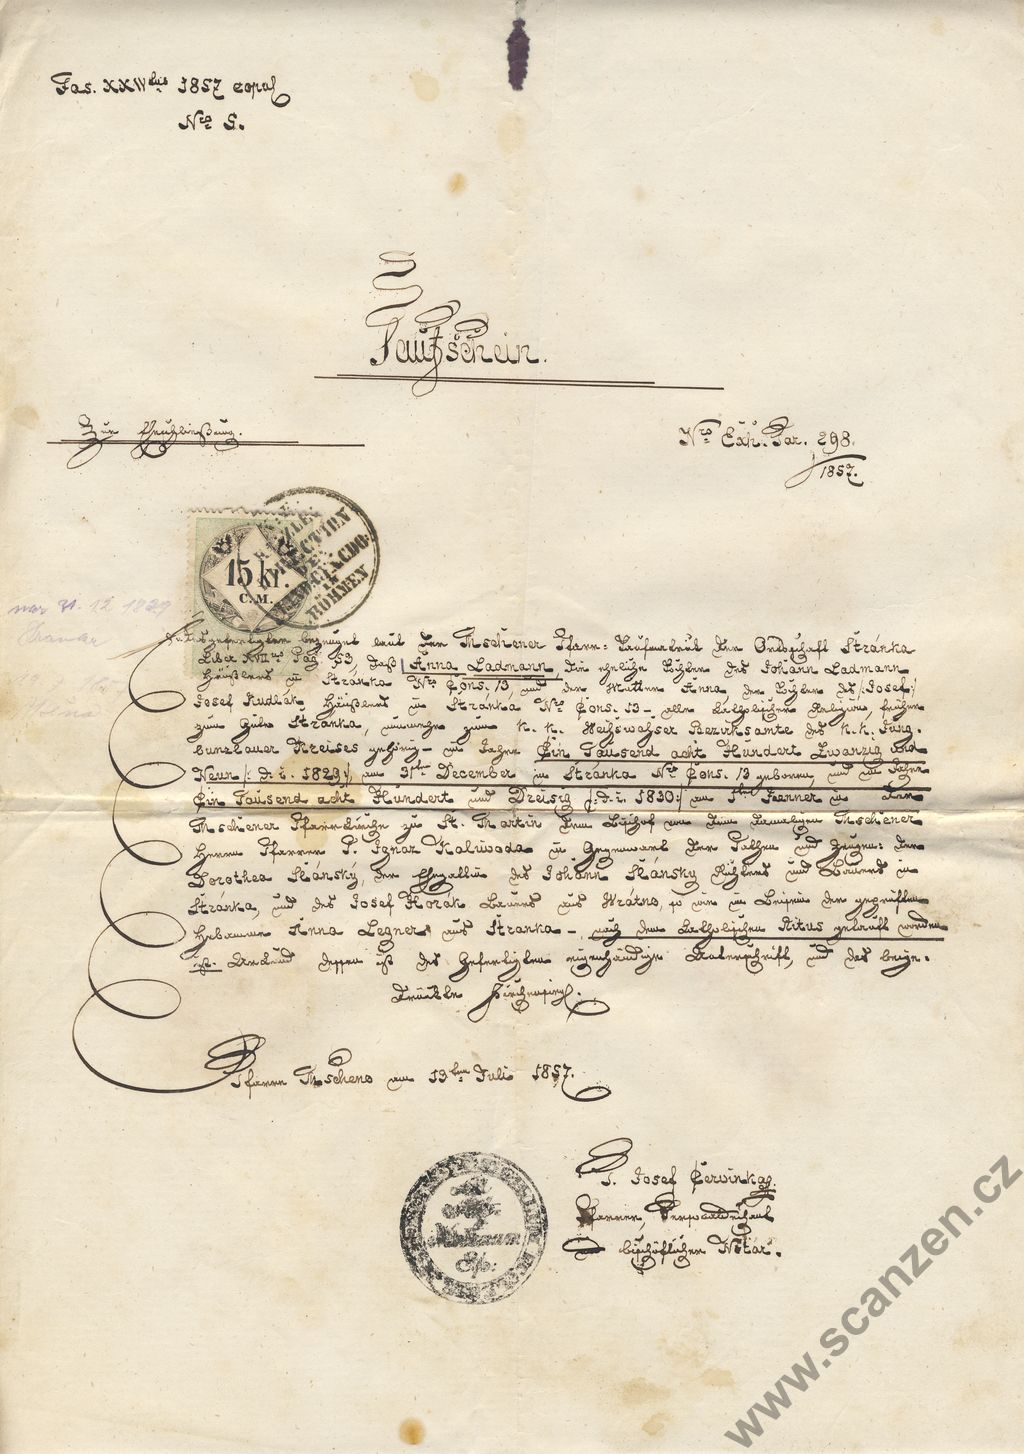 Fas. XXIV 1857 copul
Nro 5.
Taufschein.
Zur Verehligung.
Nro Exh. Par. 298.
1857.
15 kr.
C.M.
DIRECTION
BÖHMEN
nar 31. 12. 1829
Endesgefertigter bezeuget laut der Mschener Pfarr= Taufmatrik der Ortschaft Stránka
Liber XVI Pag. 53, daß Anna Ladmann, die eheliche Tochter des Johann Ladmann
Häußlers in Stránka Nro Cons. 13, und der Mutter Anna, der Tochter des /:Josef:/
Josef Kudlák Häußlers in Stránka Nro Cons. 13 – alle katholischer Religion, früher
zum Gute Stránka, nunmehr zum k. k. Weißwasser Bezirksamte des k. k. Jung=
bunzlauer Kreises gehörig – im Jahre Ein Tausend acht Hundert Zwanzig und
Neun /: d. i. 1829:/ am 31ten December in Stránka Nro Cons. 13 geboren, und im Jahre
Ein Tausend acht Hundert und Dreisig /: d. i. 1830:/ am 1ten Jenner in der
Mschener Pfarrkirche zu St. Martin dem Bischof von dem damaligen Mschener
Herrn Pfarrer P. Ignaz Kaliwoda in Gegenwart der Pathen und Zeugen: der
Dorothea Slánský, der Ehegattin des Johann Slánsky Richters und Bauers in
Stránka, und des Josef Horak Bauers aus Wrátno, so wie im Beisein der geprüften
Hebamme Anna Legner aus Stranka –, nach dem katholischen Ritus getauft worden
ist. Urkund dessen ist des Gefertigten eigenhändige Unterschrift, und das beige=
drückte Kirchensigl.
Pfarre Mscheno am 13ten Juli 1857.
P. Josef Červinka
Pfarrer,
bischöflicher Notár.
www.scanzen.cz